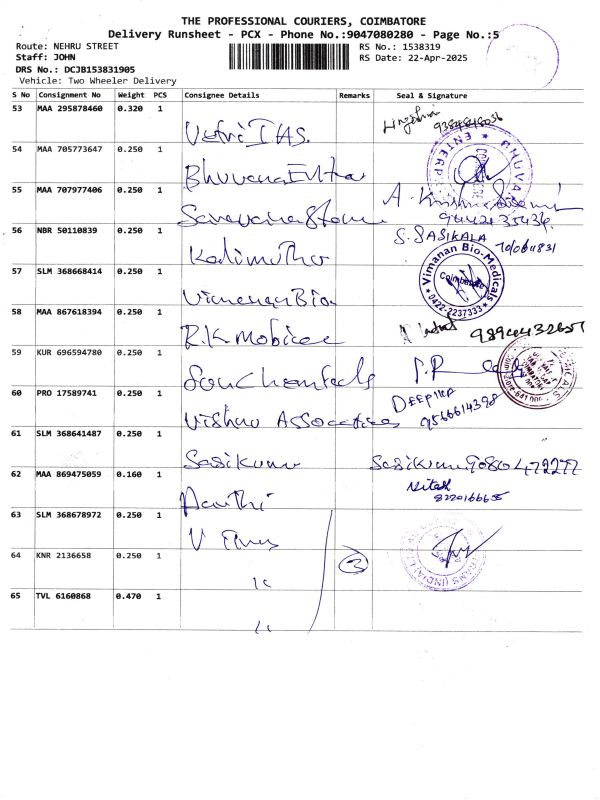 THE PROFESSIONAL COURIERS, COIMBATORE
Delivery Runsheet - PCX - Phone No.:9047080280 - Page No.:5
Route: NEHRU STREET
RS No.: 1538319
Staff: JOHN
RS Date: 22-Apr-2025
DRS No.: DCJB153831905
Vehicle: Two Wheeler Delivery
S No Consignment No Weight PCS Consignee Details Remarks Seal & Signature
53 MAA 295878460 0.320 1 Vetri IAS.
54 MAA 705773647 0.250 1 Bhuvana
55 MAA 707977406 0.250 1 Saravana Stores
56 NBR 50110839 0.250 1 S. SASIKALA
57 SLM 368668414 0.250 1 Vimanan Bio
Vimanan Bio-Medicals
Coimbatore
0422-2237333
58 MAA 867618394 0.250 1 R.K Mobiles
59 KUR 696594780 0.250 1
60 PRO 17589741 0.250 1 Vishnu Associates DEEPIKA
9566614398
61 SLM 368641487 0.250 1 Sasikumar Sasikumar 9080472277
62 MAA 869475059 0.160 1 Aarthi Nitesh
8220166655
63 SLM 368678972 0.250 1 V
64 KNR 2136658 0.250 1 3
65 TVL 6160868 0.470 1